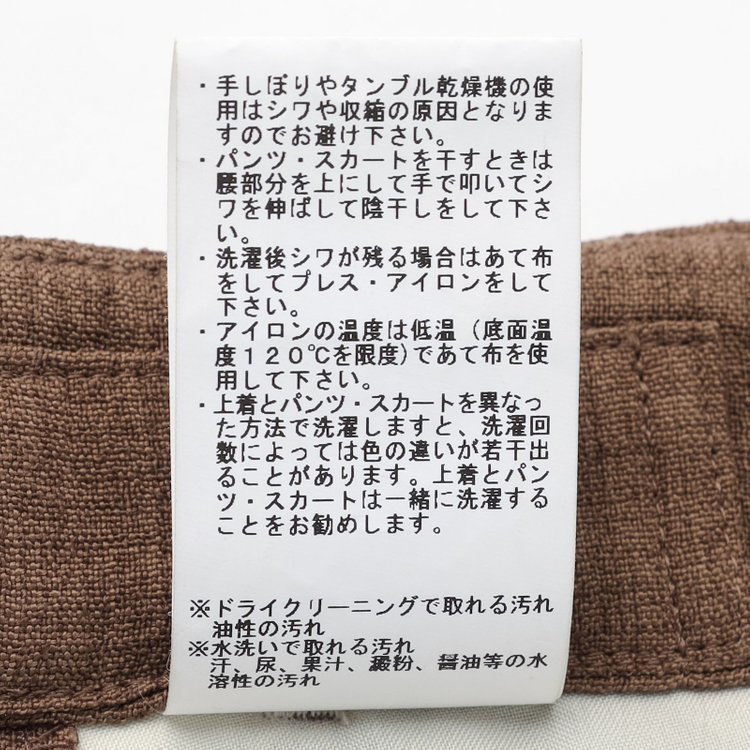 ・手しぼりやタンブル乾燥機の使
用はシワや収縮の原因となりま
すのでお避け下さい。
・パンツ・スカートを干すときは
腰部分を上にして手で叩いてシ
ワを伸ばして陰干しをして下さ
い。
・洗濯後シワが残る場合はあて布
をしてプレス・アイロンをして
下さい。
・アイロンの温度は低温（底面温
度１２０℃を限度)であて布を使
用して下さい。
・上着とパンツ・スカートを異なっ
た方法で洗濯しますと、洗濯回
数によっては色の違いが若干出
ることがあります。上着とパン
ツ・スカートは一緒に洗濯する
ことをお勧めします。
※ドライクリーニングで取れる汚れ
油性の汚れ
※水洗いで取れる汚れ
汗、尿、果汁、澱粉、醤油等の水
溶性の汚れ